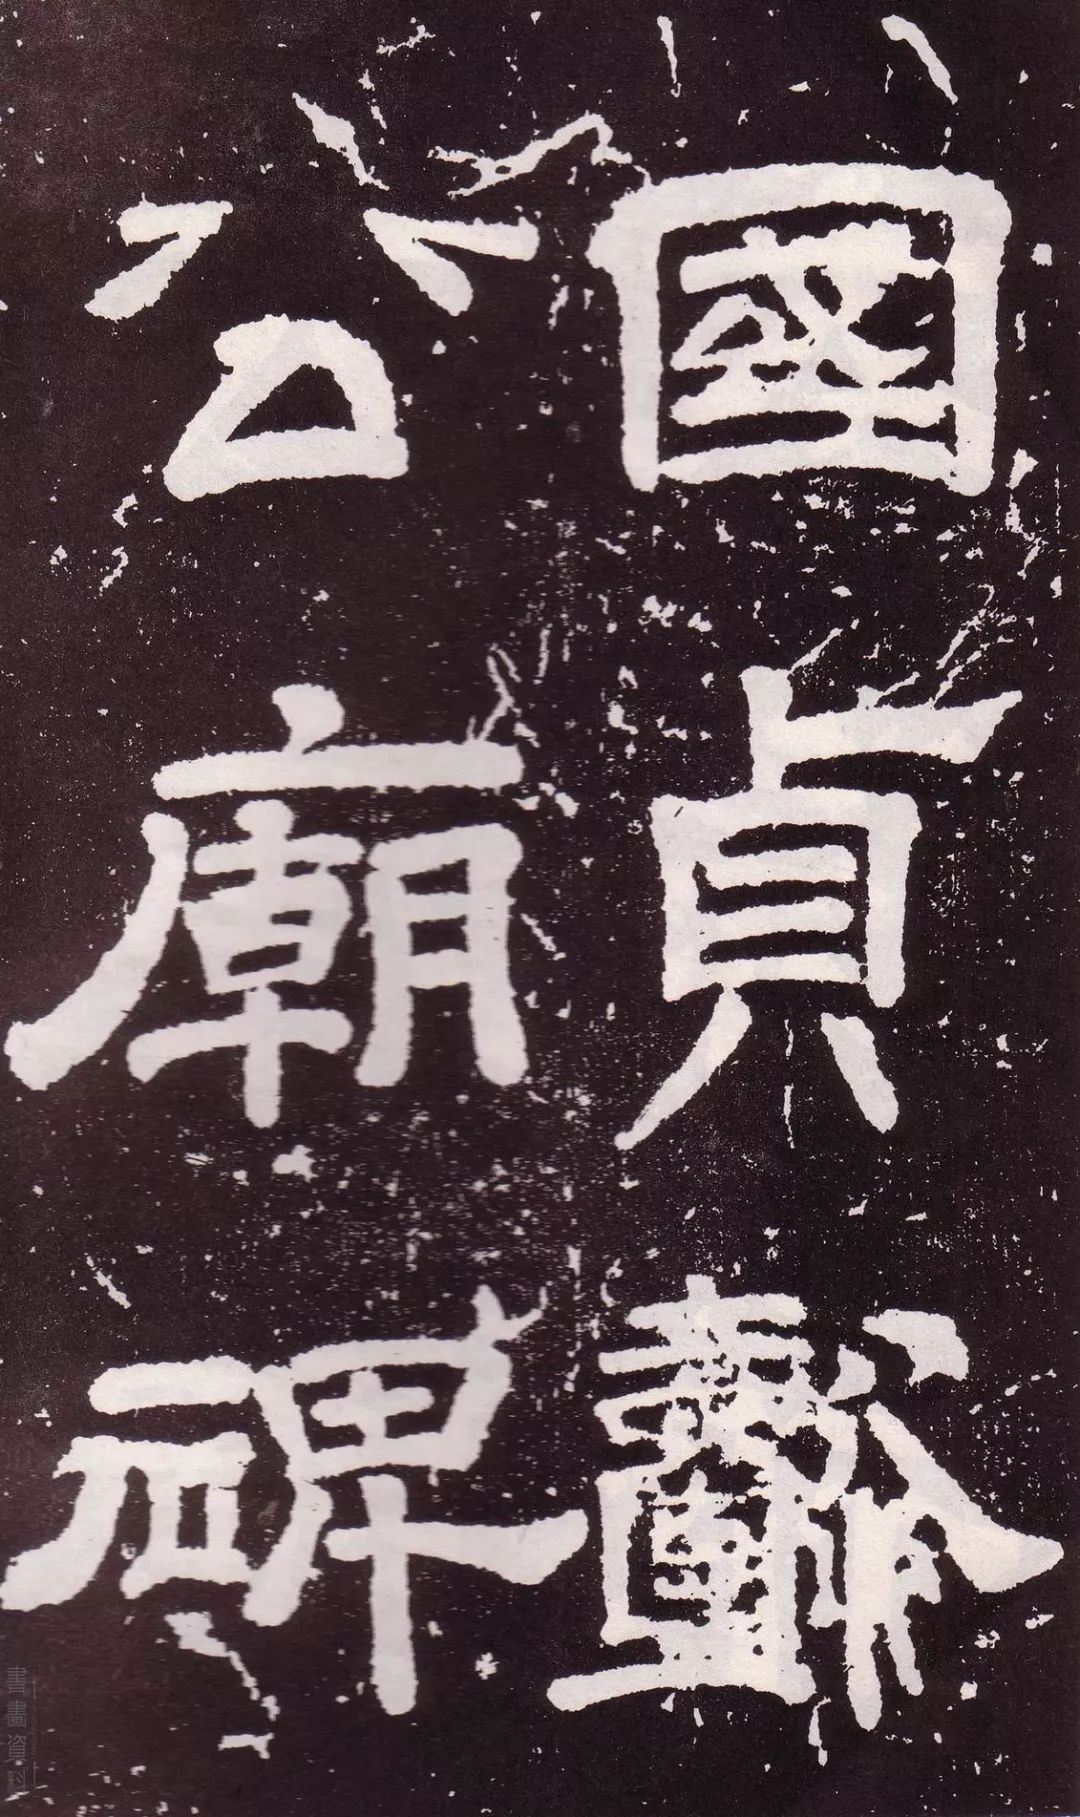 國貞
公廟碑
書畫資料